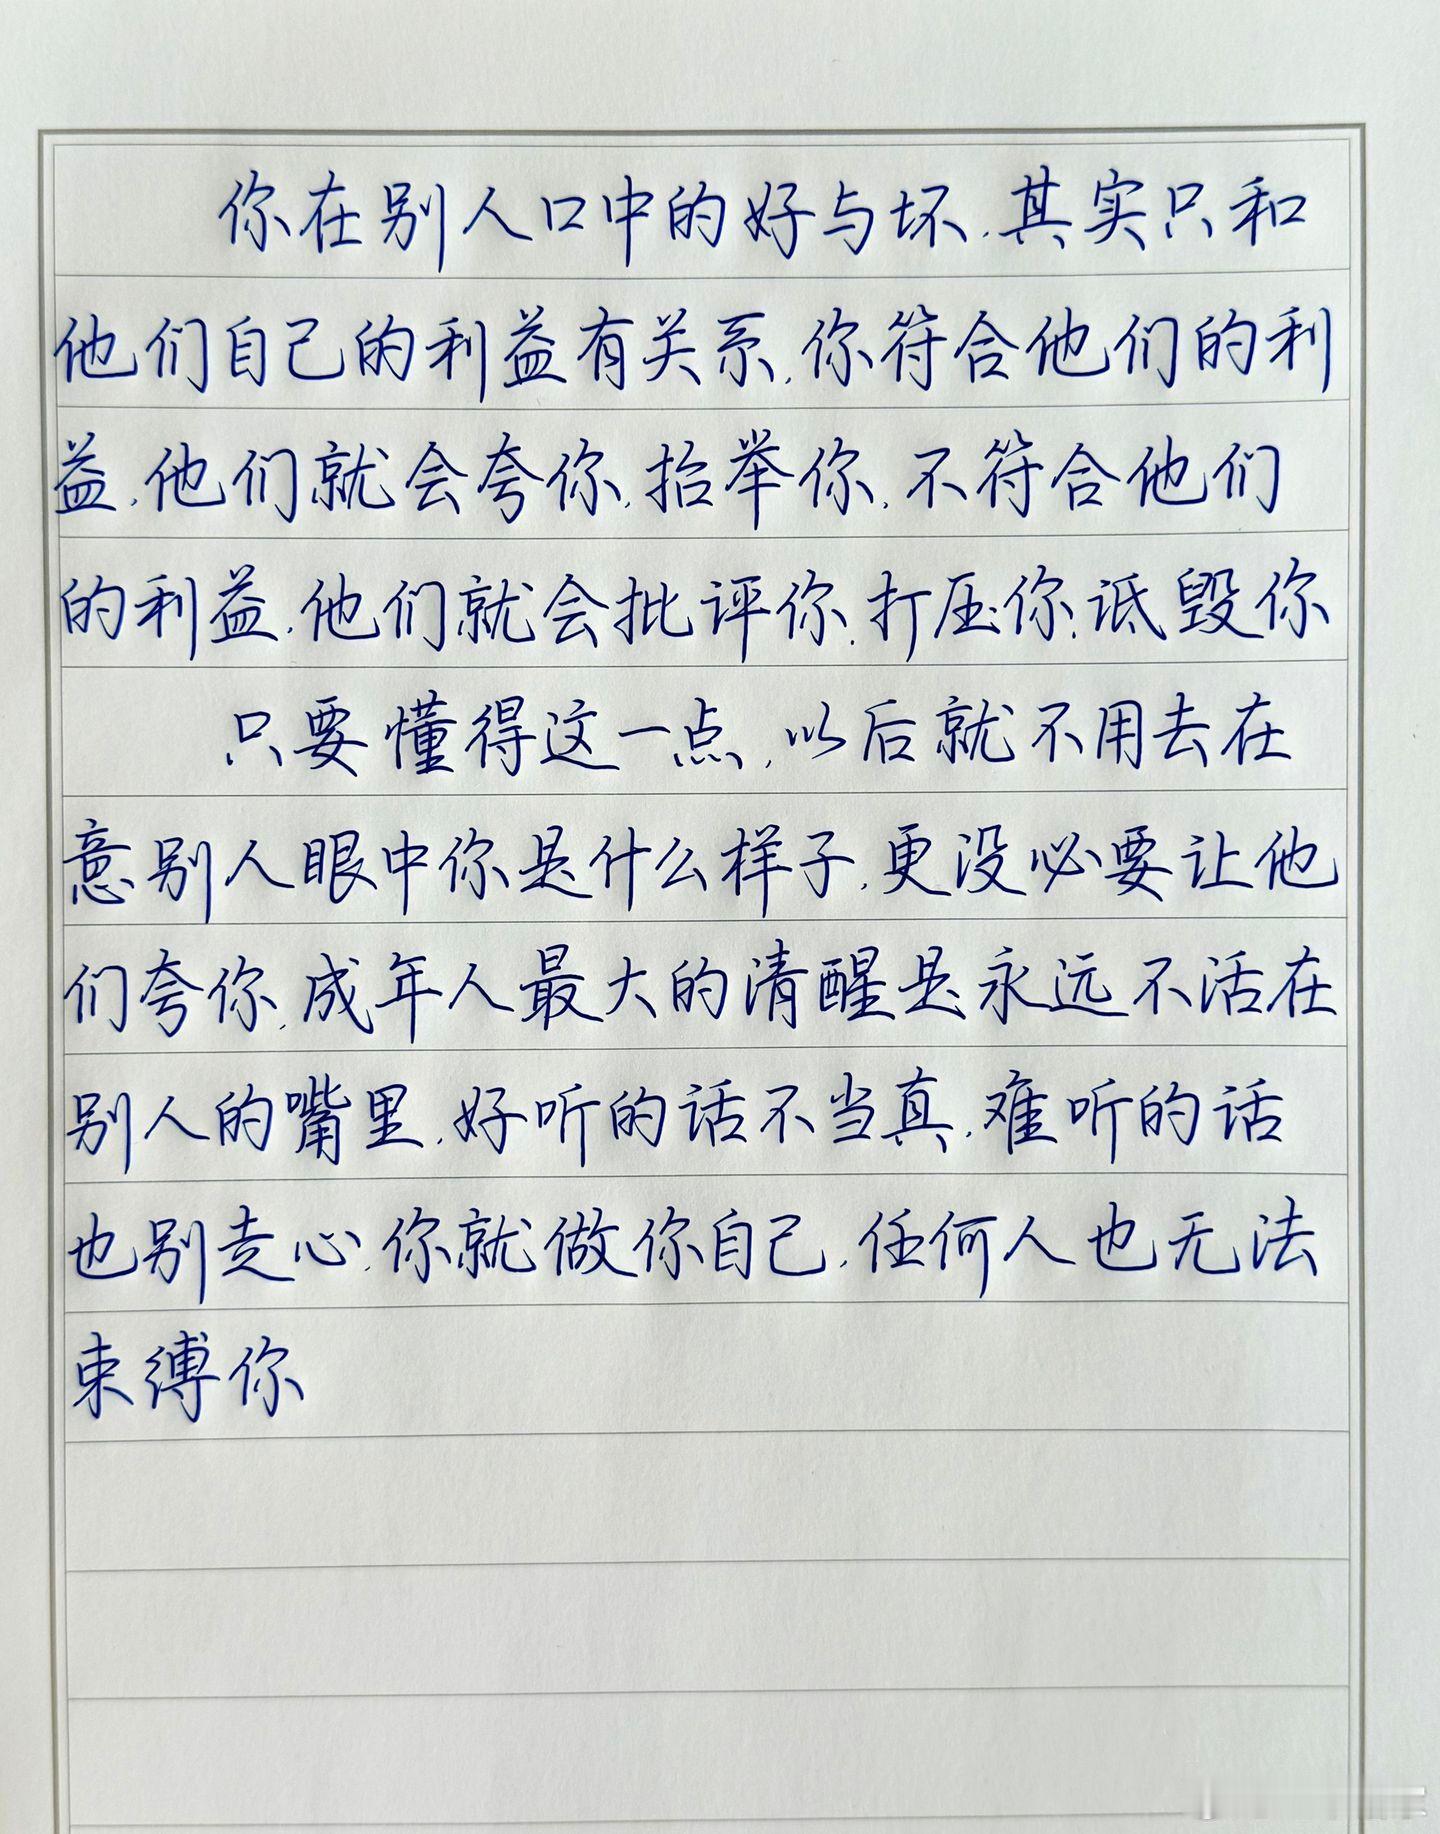 你在别人口中的好与坏,其实只和
他们自己的利益有关系,你符合他们的利
益,他们就会夸你,抬举你,不符合他们
的利益,他们就会批评你,打压你,诋毁你
只要懂得这一点,以后就不用去在
意别人眼中你是什么样子,更没必要让他
们夸你,成年人最大的清醒是永远不活在
别人的嘴里,好听的话不当真,难听的话
也别走心,你就做你自己,任何人也无法
束缚你